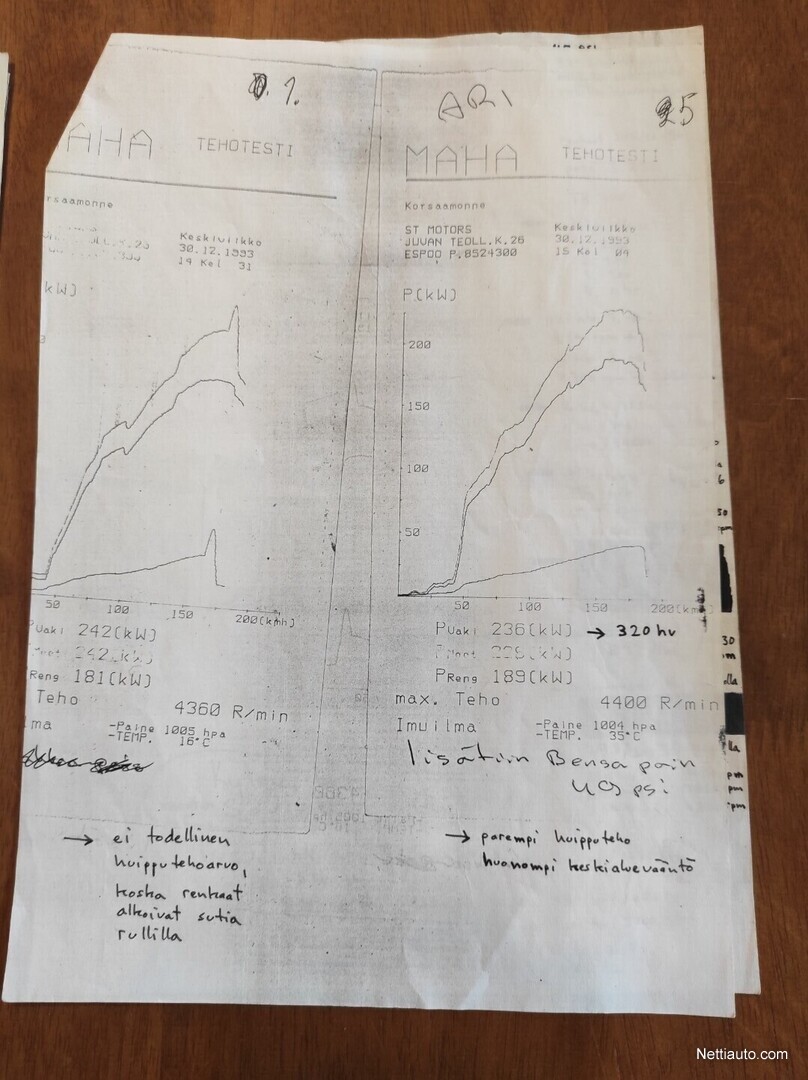 1.
AHA TEHOTESTI
rsaamonne
Keskiviikko
30.12.1993
14 Kel 31
kW)
50 100 150 200(kmh)
PVaki 242(kW)
242(kW)
PReng 181(kW)
Teho 4360 R/min
ma -Paine 1005 hpa
-TEMP. 16°C
→ ei todellinen
huipputehoarvo,
koska renkaat
alkoivat sutia
rullilla
ARI
25
MAHA TEHOTESTI
Korsaamonne
ST MOTORS Keskiviikko
JUVAN TEOLL.K.26 30.12.1993
ESPOO P.8524300 15 Kel 04
P(kW)
200
150
100
50
50 100 150 200(kmh)
PVaki 236(kW) → 320 hv
PReng 189(kW)
max. Teho 4400 R/min
Imuilma -Paine 1004 hpa
-TEMP. 35°C
lisättiin Bensa pain
→ parempi huipputeho
huonompi keskialuevääntö
Nettiauto.com